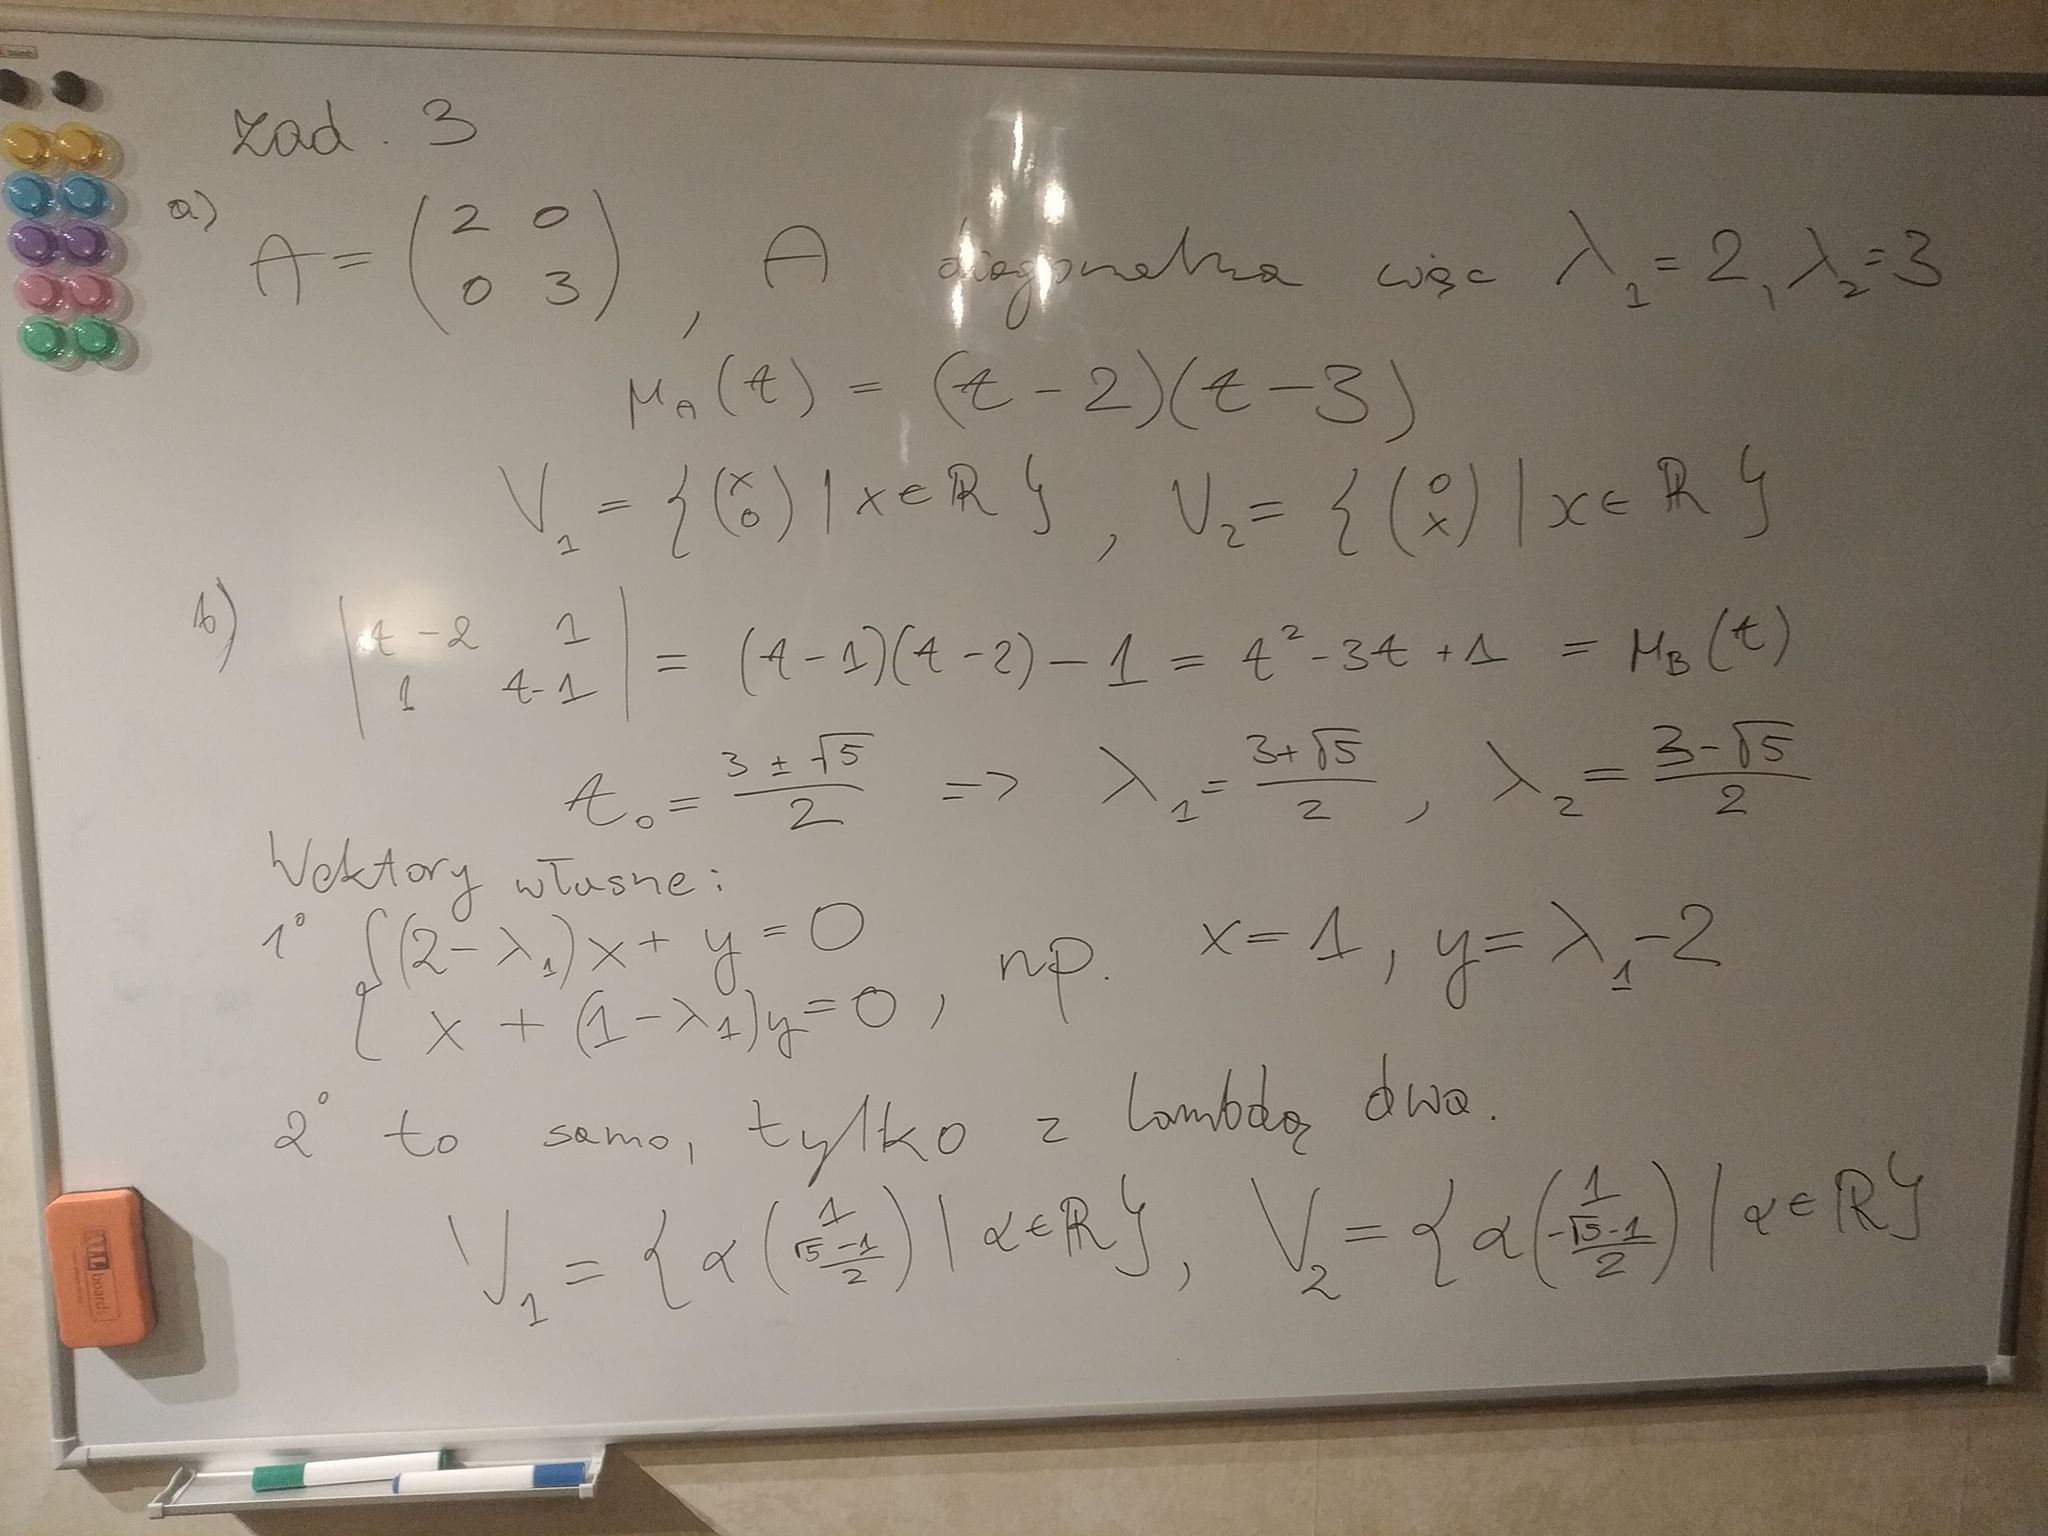 zad. 3
a) A = (2 0 0 3), A diagonalna więc λ₁ = 2, λ₂ = 3
μ_A(t) = (t - 2)(t - 3)
V₁ = { (x 0) | x ∈ ℝ }, V₂ = { (0 x) | x ∈ ℝ }
b) |t - 2 1 1 t - 1| = (t - 1)(t - 2) - 1 = t² - 3t + 1 = μ_B(t)
t₀ = (3 ± √5)/2 => λ₁ = (3 + √5)/2, λ₂ = (3 - √5)/2
Wektory własne:
1° { (2 - λ₁)x + y = 0
x + (1 - λ₁)y = 0, np. x = 1, y = λ₁ - 2
2° to samo, tylko z lambdą dwa.
V₁ = { α (1 (√5 - 1)/2) | α ∈ ℝ }, V₂ = { α (1 (-√5 - 1)/2) | α ∈ ℝ }
boards